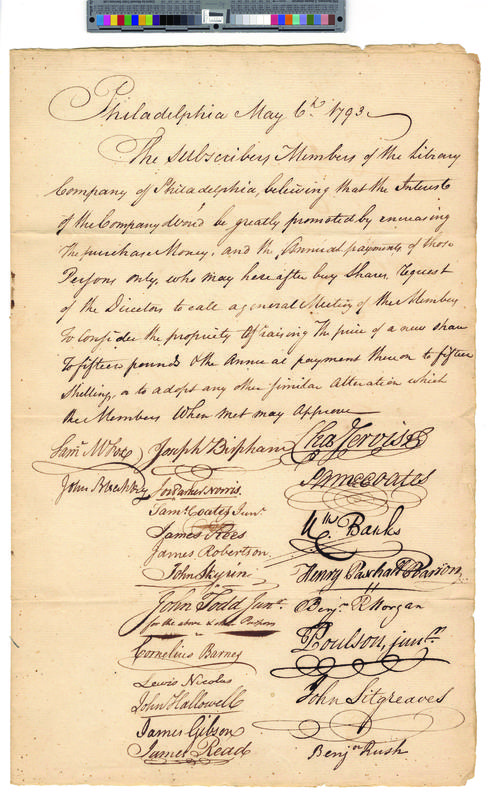 Philadelphia May 6th 1793
The Subscribers Members of the Library
Company of Philadelphia, believing that the Interest
of the Company Wou'd be greatly promoted by encreasing
The purchase Money, and the Annual payments of those
Persons only, who may hereafter buy Shares, Request
of the Directors to call a general Meeting of the Members
To consider the propriety Of raising the price of a new share
To fifteen pounds & the Annual payment thereon to fifteen
Shillings, or to adopt any other Similar Alteration which
the Members When met may Approve
Saml. M Fox Joseph Bispham Chas Jervis
John Jos Parker Norris
Saml. Coates
Saml. Coates Junr.
James Rees Wm. Banks
James Robertson
John Skyrin Henry
John Todd Junr. Benjn. R Morgan
for the above
Cornelius Barnes Z Poulson, junr.
Lewis Nicolas
John Hallowell John Sitgreaves
James Gibson
James Read Benjn. Rush